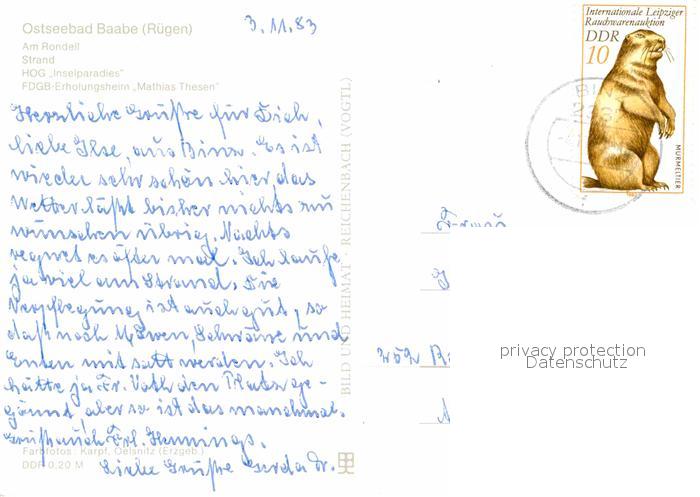 Ostseebad Baabe (Rügen)
Am Rondell
Strand
HOG „Inselparadies"
FDGB-Erholungsheim „Mathias Thesen"
3.11.83
Herzliche Grüße für Dich,
liebe Ilse, aus Binz. Es ist
wieder sehr schön hier, das
Wetter läßt bisher nichts zu
wünschen übrig. Nachts
regnet es öfter mal. Ich laufe
ja viel am Strand. Die
Verpflegung ist auch gut, so
daß noch Möwen, Schwäne und
Enten mit satt werden. Ich
hätte ja Fr. Vath den Platz ge-
gönnt aber so ist das manchmal.
Grüß auch Frl. Hennings.
Liebe Grüße Gerda Dr.
Farbfotos: Karpf, Oelsnitz (Erzgeb.)
DDR 0,20 M
BILD UND HEIMAT · REICHENBACH (VOGTL)
Internationale Leipziger
Rauchwarenauktion
DDR
10
MURMELTIER
privacy protection
Datenschutz